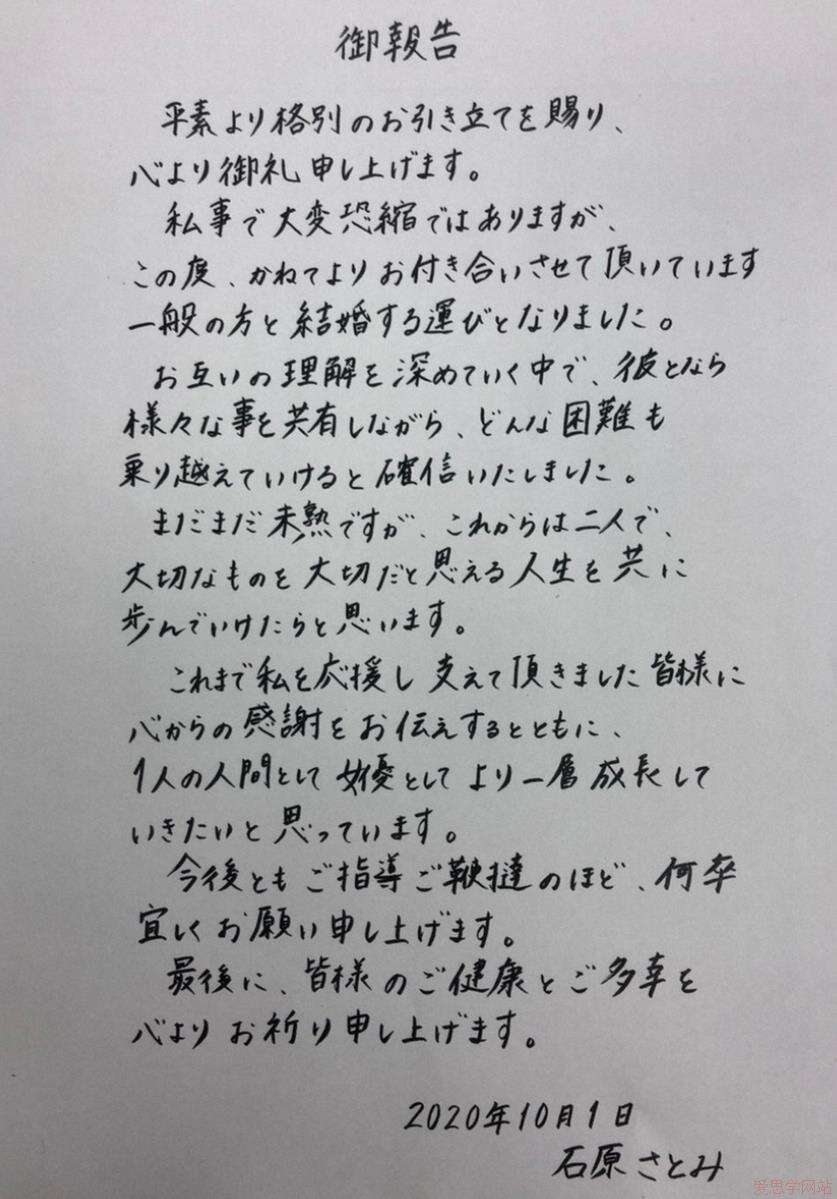 御報告
平素より格別のお引き立てを賜り、
心より御礼申し上げます。
私事で大変恐縮ではありますが、
この度、かねてよりお付き合いさせて頂いています
一般の方と結婚する運びとなりました。
お互いの理解を深めていく中で、彼となら
様々な事を共有しながら、どんな困難も
乗り越えていけると確信いたしました。
まだまだ未熟ですが、これからは二人で、
大切なものを大切だと思える人生を共に
歩んでいけたらと思います。
これまで私を応援し支えて頂きました皆様に
心からの感謝をお伝えするとともに、
1人の人間として女優としてより一層成長して
いきたいと思っています。
今後ともご指導ご鞭撻のほど、何卒
宜しくお願い申し上げます。
最後に、皆様のご健康とご多幸を
心よりお祈り申し上げます。
2020年10月1日
石原さとみ
爱思学网站